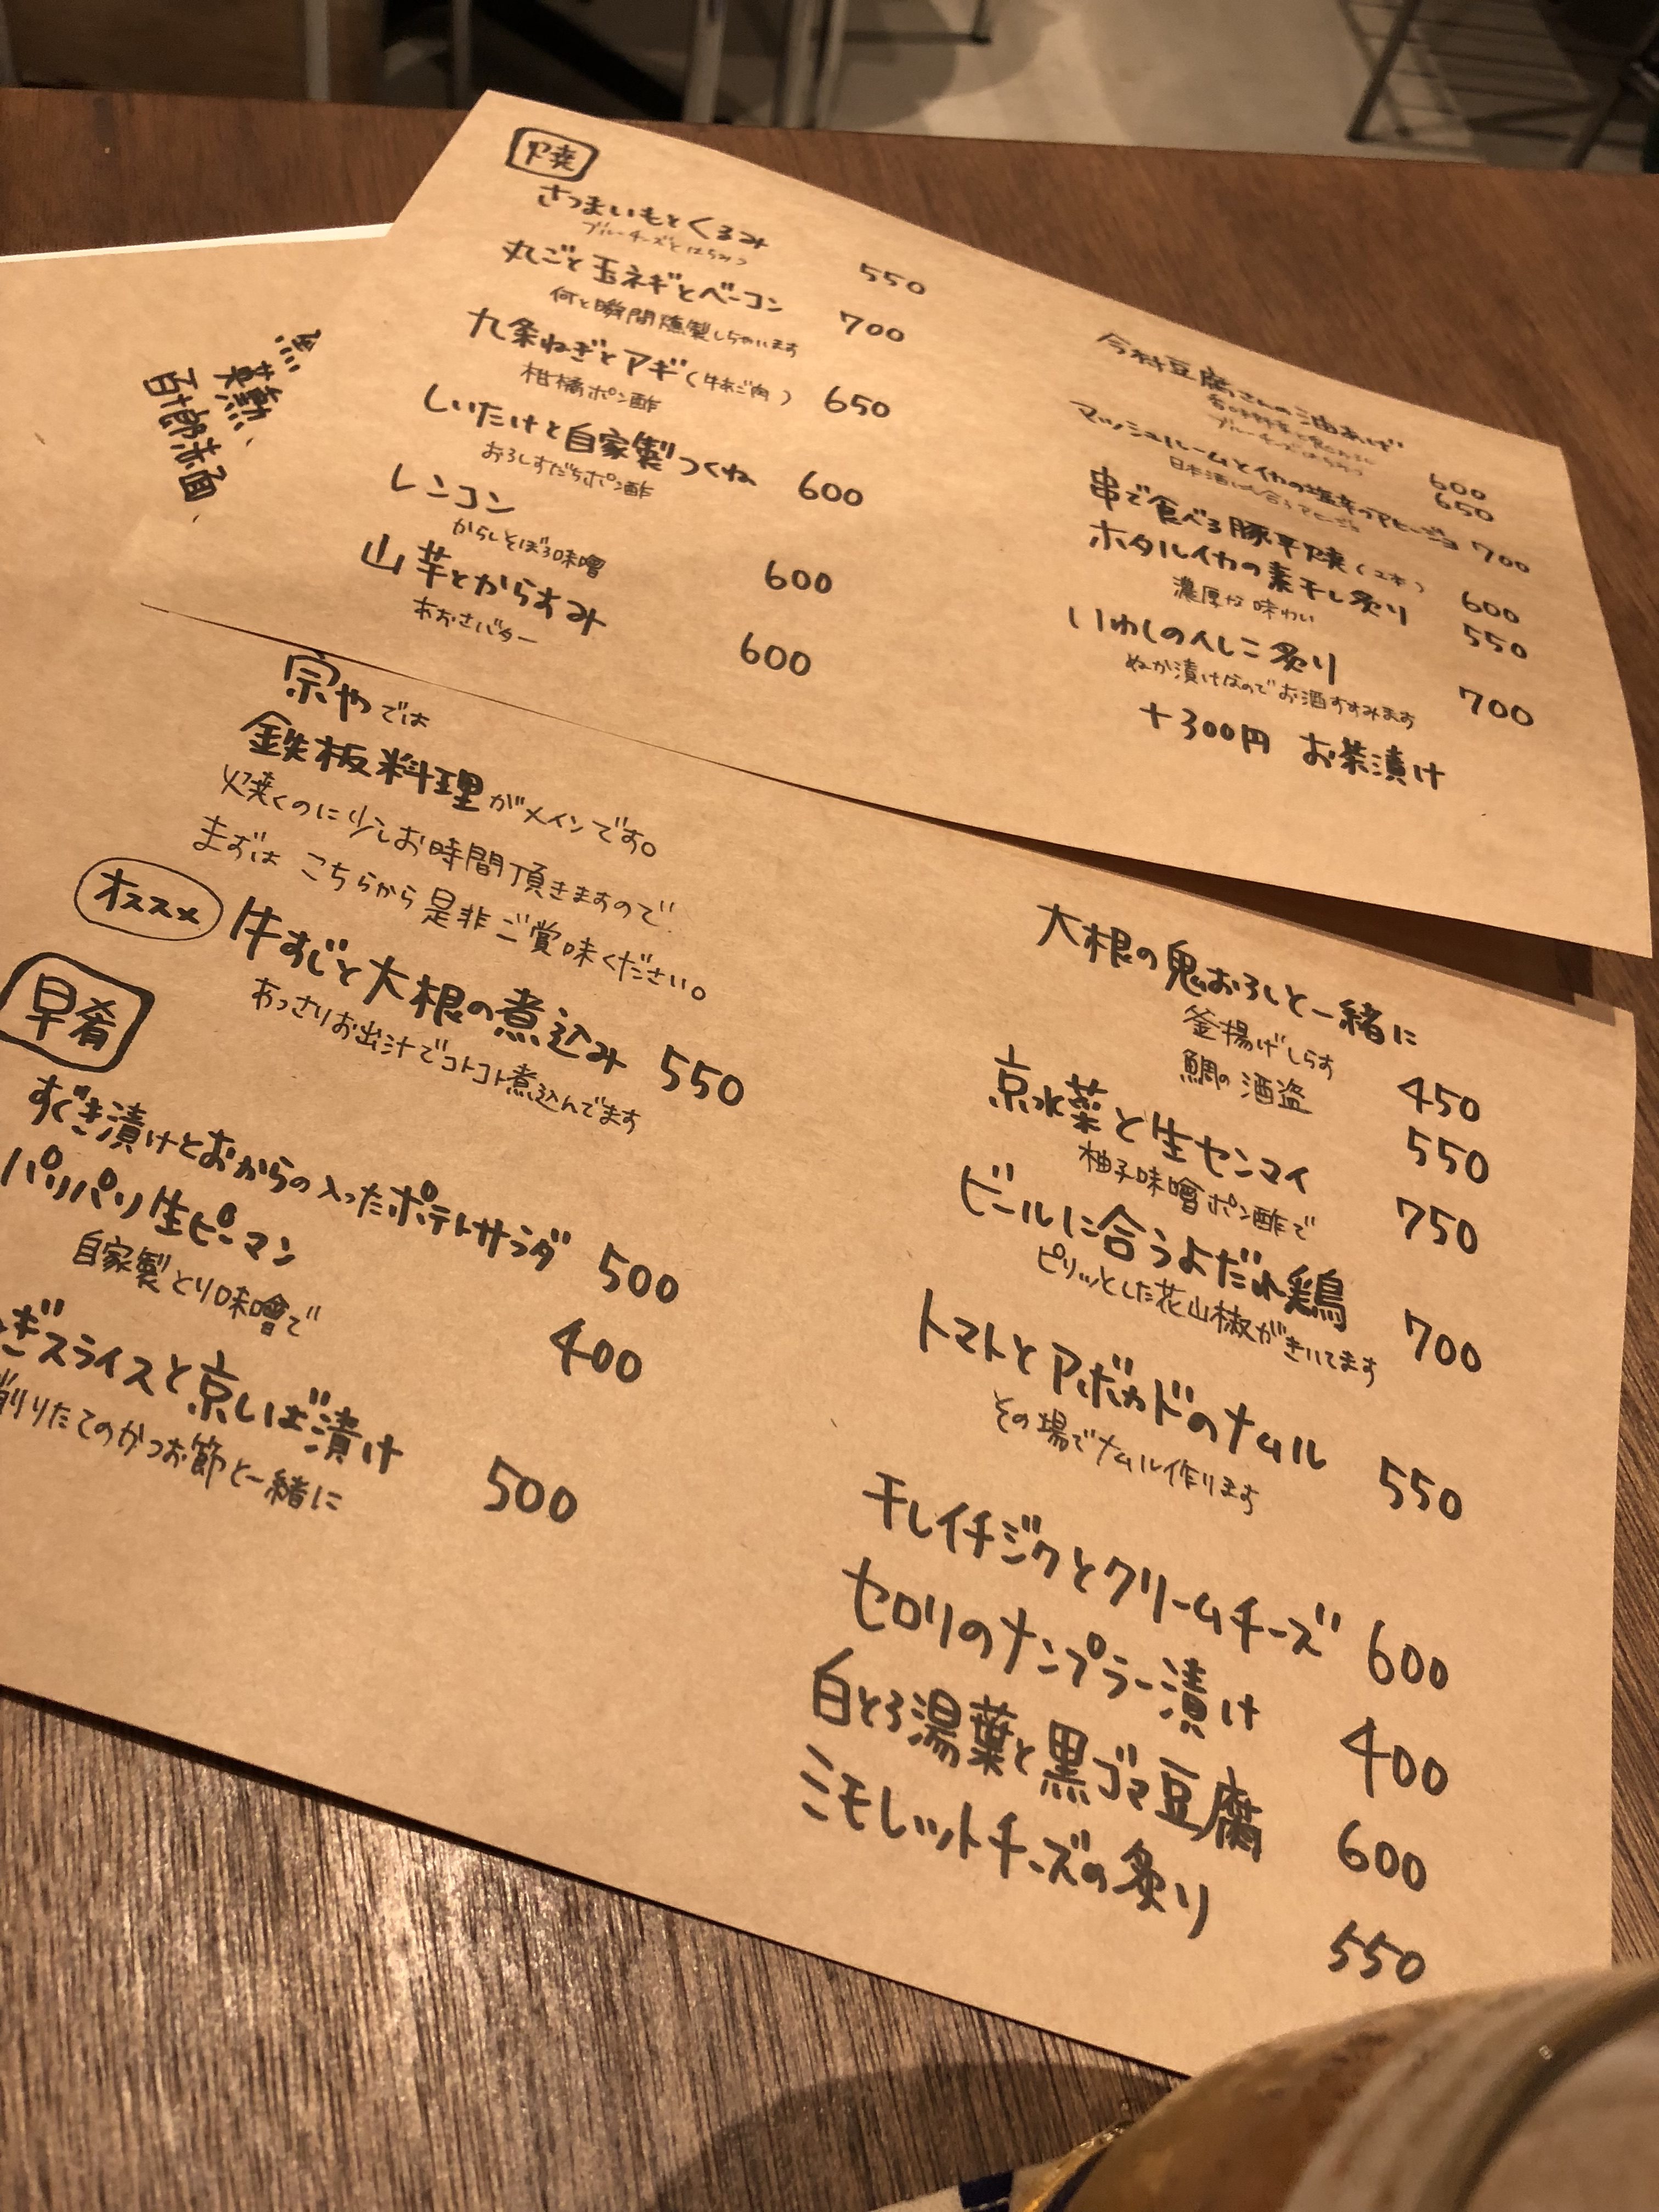 焼
さつまいもとくるみ 550
ブルーチーズとはちみつ
丸ごと玉ネギとベーコン 700
何と瞬間燻製しちゃいます
九条ねぎとアギ(牛あご肉) 650
柑橘ポン酢
しいたけと自家製つくね 600
おろしすだちポン酢
レンコン 600
からしそぼろ味噌
山芋とからすみ 600
あおさバター
今村豆腐さんの油あげ
600
ブルーチーズはちみつ 650
マッシュルームとイカの塩辛のアヒージョ 700
日本酒に合うアヒージョ
串で食べる豚平焼(2本) 600
ホタルイカの素干し炙り 550
濃厚な味わい
いわしのへしこ炙り 700
ぬか漬けなのでお酒すすみます
+300円 お茶漬け
宗やでは
鉄板料理がメインです。
焼くのに少しお時間頂きますので
まずは こちらから是非ご賞味ください。
オススメ 牛すじと大根の煮込み 550
あっさりお出汁でコトコト煮込んでます
早肴
すぐき漬けとおからの入ったポテトサラダ 500
パリパリ生ピーマン 400
自家製とり味噌で
ぎスライスと京しば漬け 500
削りたてのかつお節と一緒に
大根の鬼おろしと一緒に
釜揚げしらす 450
鯛の酒盗 550
京水菜と生センマイ 750
柚子味噌ポン酢で
ビールに合うよだれ鶏 700
ピリッとした花山椒がきいてます
トマトとアボカドのナムル 550
その場でナムル作ります
干しイチジクとクリームチーズ 600
セロリのナンプラー漬け 400
白とろ湯葉と黒ゴマ豆腐 600
ミモレットチーズの炙り 550